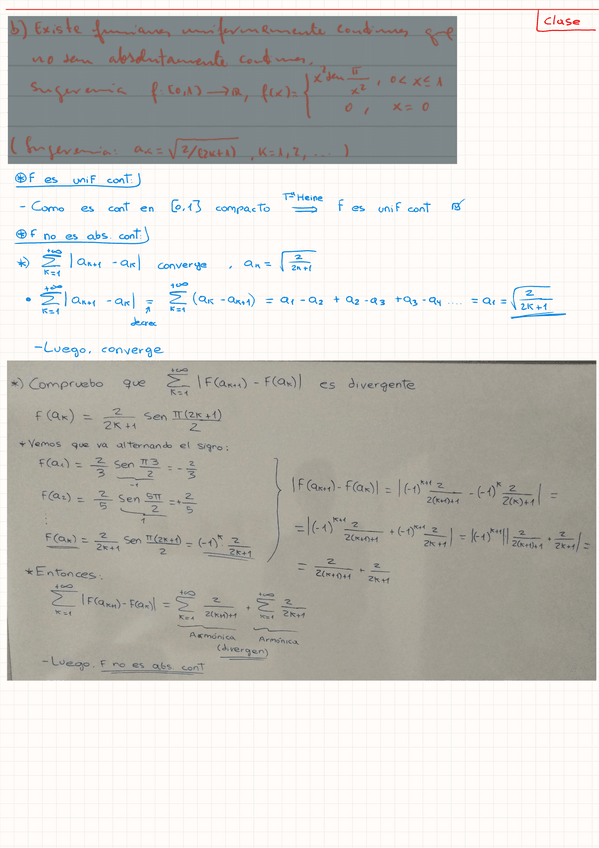 Clase
b) Existe funciones uniformemente continuas que
no sean absolutamente continuas.
Sugerencia f: [0,1) → ℝ, f(x) = { x² sen π/x² , 0 < x ≤ 1
0 , x = 0
(Sugerencia: aₖ = √(2/(2k+1)) , k = 1, 2, ...)
⊛ F es unif cont:)
- Como es cont en [0,1] compacto ⟹ (Tᵐᵃ Heine) F es unif cont ☑
⊛ F no es abs cont:)
*) ∑_{k=1}^{+∞} |aₖ₊₁ - aₖ| converge , aₙ = √(2/(2n+1))
• ∑_{k=1}^{+∞} |aₖ₊₁ - aₖ| = ∑_{k=1}^{+∞} (aₖ - aₖ₊₁) = a₁ - a₂ + a₂ - a₃ + a₃ - a₄ .... = a₁ = √(2/(2k+1))
↑ decrec
- Luego, converge
*) Compruebo que ∑_{k=1}^{+∞} |F(aₖ₊₁) - F(aₖ)| es divergente
F(aₖ) = 2/(2k+1) sen π(2k+1)/2
* Vemos que va alternando el signo:
F(a₁) = 2/3 sen π3/2 = - 2/3
-1
F(a₂) = 2/5 sen 5π/2 = + 2/5
1
⋮
F(aₖ) = 2/(2k+1) sen π(2k+1)/2 = (-1)ᵏ 2/(2k+1)
|F(aₖ₊₁) - F(aₖ)| = |(-1)ᵏ⁺¹ 2/(2(k+1)+1) - (-1)ᵏ 2/(2(k)+1)| =
= |(-1)ᵏ⁺¹ 2/(2(k+1)+1) + (-1)ᵏ⁺¹ 2/(2k+1)| = |(-1)ᵏ⁺¹| |2/(2(k+1)+1) + 2/(2k+1)| =
= 2/(2(k+1)+1) + 2/(2k+1)
* Entonces:
∑_{k=1}^{+∞} |F(aₖ₊₁) - F(aₖ)| = ∑_{k=1}^{+∞} 2/(2(k+1)+1) + ∑_{k=1}^{+∞} 2/(2k+1)
Armónica Armónica
(divergen)
- Luego, F no es abs cont